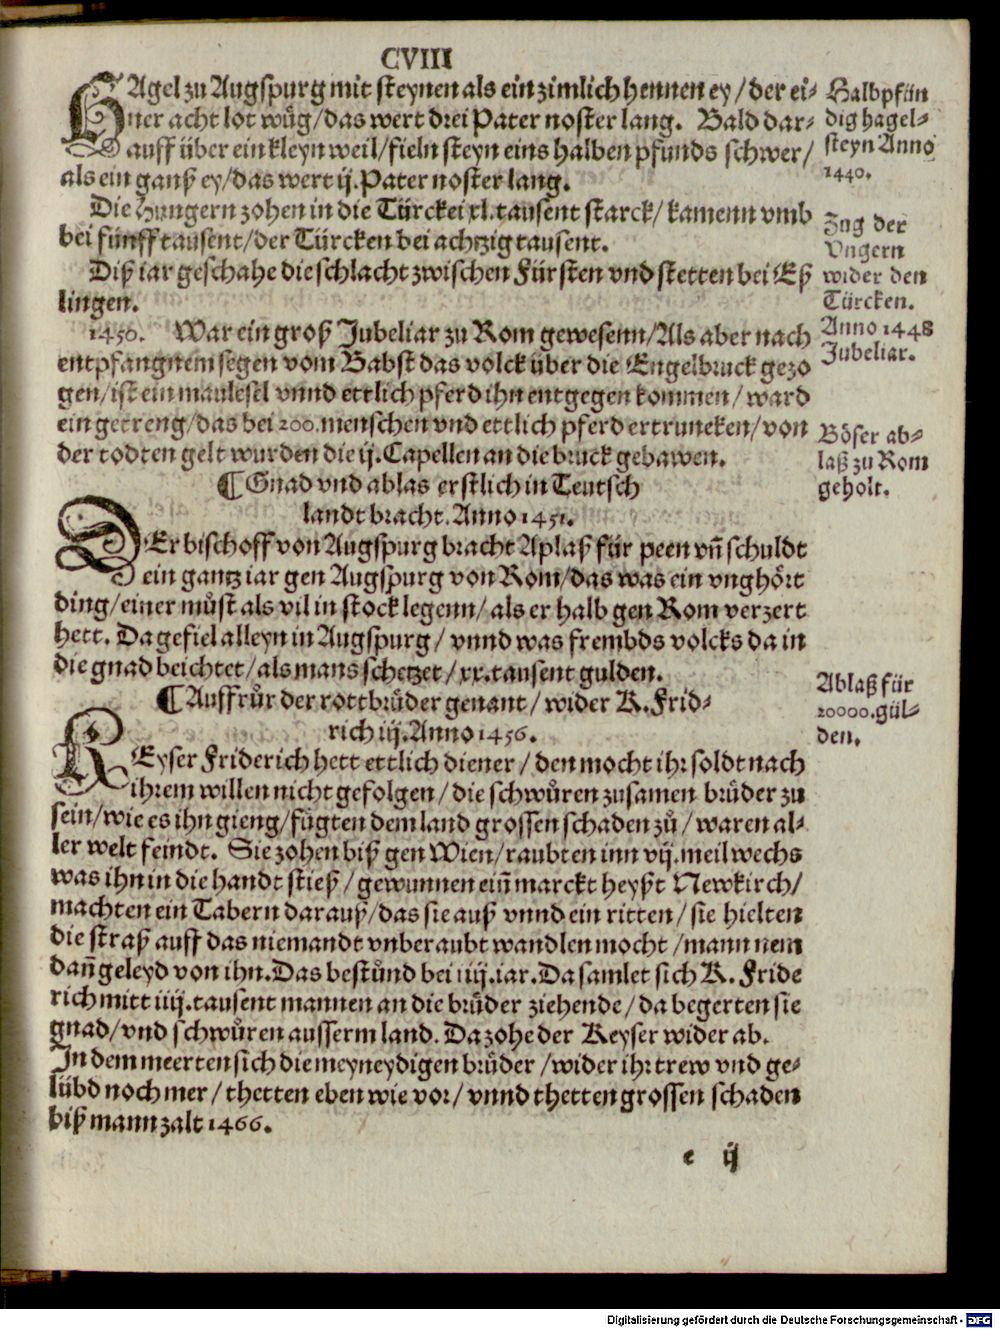 CVIII
HAgel zu Augspurg mit steynen als ein zimlich hennen ey/der ei-
ner acht lot wůg/das wert drei Pater noster lang. Bald dar-
auff über ein kleyn weil/fieln steyn eins halben pfunds schwer/
als ein ganß ey/das wert ij. Pater noster lang.
Halbpfün
dig hagel-
steyn Anno
1440.
Die Hungern zohen in die Türckei xl. tausent starck/kamenn vmb
bei fünff tausent/der Türcken bei achtzig tausent.
Zug der
Vngern
wider den
Türcken.
Anno 1448
Diß iar geschahe die schlacht zwischen Fürsten vnd stetten bei Eß
lingen.
1450. War ein groß Jubeliar zu Rom gewesenn/Als aber nach
entpfangnem segen vom Babst das volck über die Engelbruck gezo
gen/ist ein maulesel vnnd ettlich pferd ihn entgegen kommen/ward
ein getreng/das bei 200. menschen vnd ettlich pferd ertruncken/von
der todten gelt wurden die ij. Capellen an die bruck gebawen.
Jubeliar.
Böser ab-
laß zu Rom
geholt.
¶ Gnad vnd ablas erstlich in Teutsch
landt bracht. Anno 1451.
DEr bischoff von Augspurg bracht Aplaß für peen vñ schuldt
ein gantz iar gen Augspurg von Rom/das was ein vnghört
ding/einer můst als vil in stock legenn/als er halb gen Rom verzert
hett. Da gefiel alleyn in Augspurg/vnnd was frembds volcks da in
die gnad beichtet/als mans schetzet/xx. tausent gulden.
Ablaß für
20000. gül-
den.
¶ Auffrůr der rottbrůder genant/wider K. Frid-
rich iij. Anno 1456.
KEyser Friderich hett ettlich diener/den mocht ihr soldt nach
ihrem willen nicht gefolgen/die schwůren zusamen brůder zu
sein/wie es ihn gieng/fügten dem land grossen schaden zů/waren al-
ler welt feindt. Sie zohen biß gen Wien/raubten inn vij. meil wechs
was ihn in die handt stieß/gewunnen eiñ marckt heyßt Newkirch/
machten ein Tabern darauß/das sie auß vnnd ein ritten/sie hielten
die straß auff das niemandt vnberaubt wandlen mocht/mann nem
dañ geleyd von ihn. Das bestůnd bei iiij. iar. Da samlet sich K. Fride
rich mitt iiij. tausent mannen an die brůder ziehende/da begerten sie
gnad/vnd schwůren ausserm land. Da zohe der Keyser wider ab.
In dem meerten sich die meyneydigen brůder/wider ihr trew vnd ge-
lübd noch mer/thetten eben wie vor/vnnd thetten grossen schaden
biß mann zalt 1466.
e ij
Digitalisierung gefördert durch die Deutsche Forschungsgemeinschaft - DFG